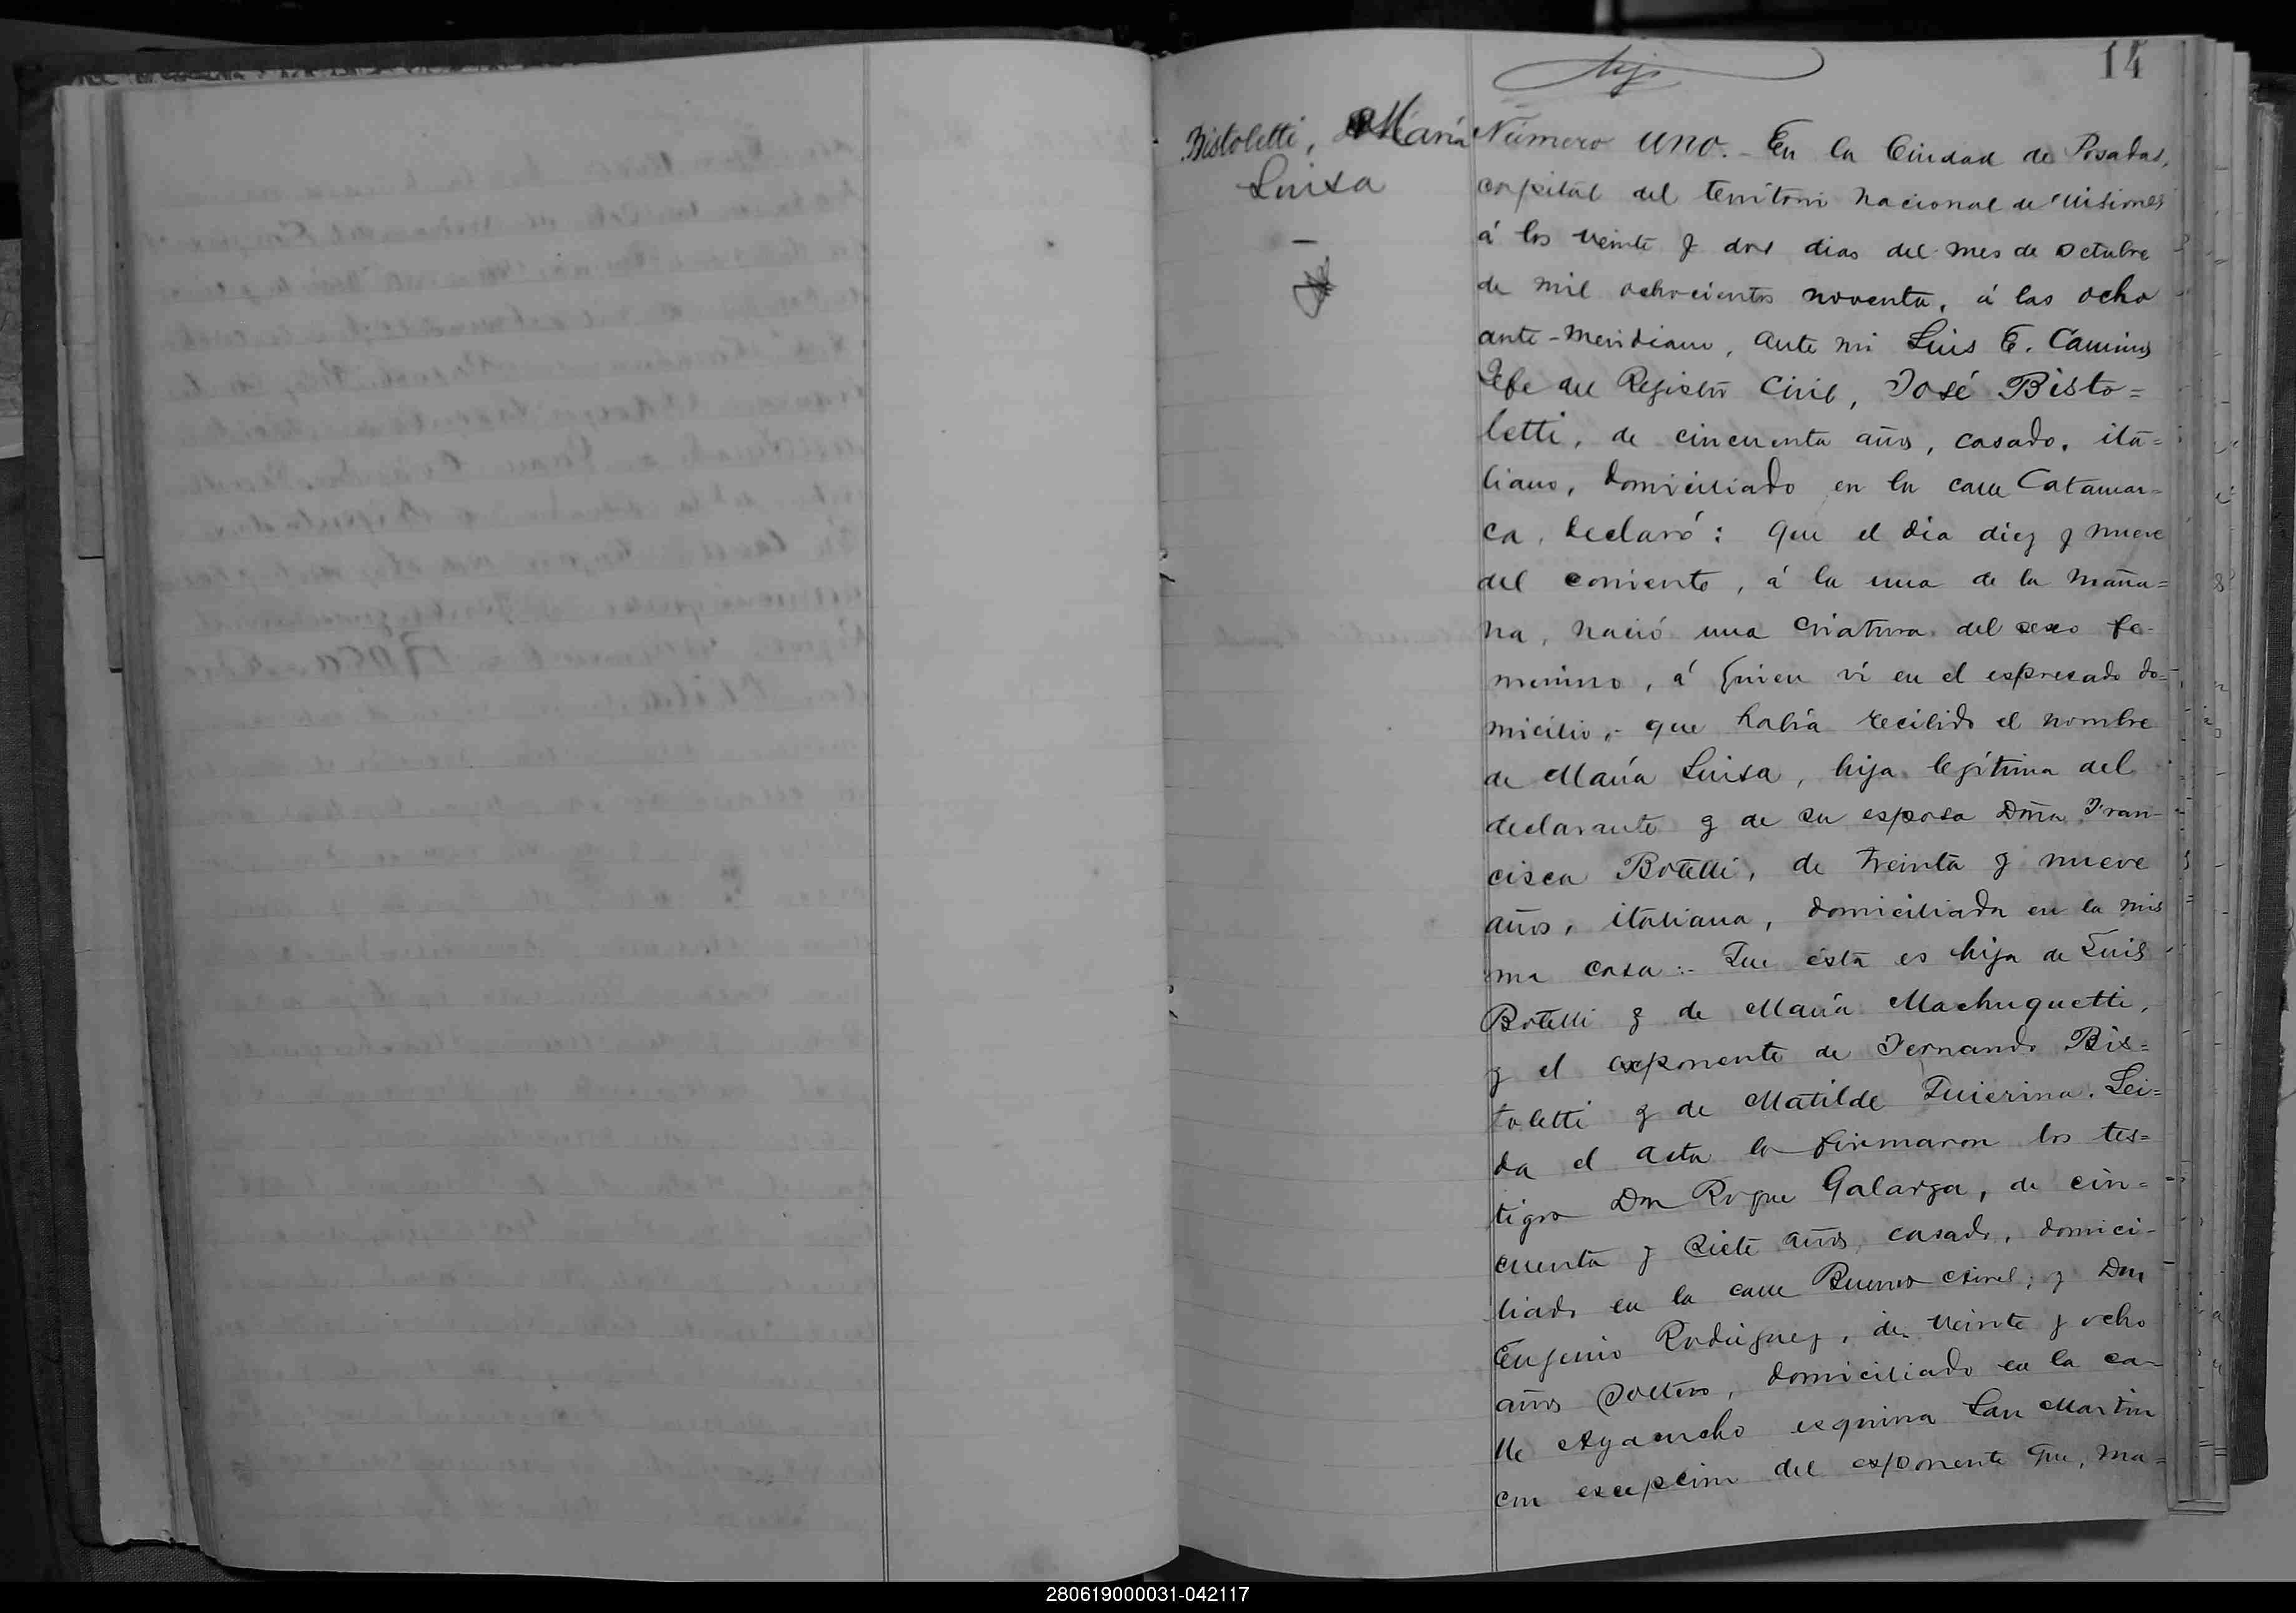 14
Bistoletti, María
Luisa
Número uno. En la Ciudad de Posadas,
capital del territorio nacional de Misiones
á los veinte y dos dias del mes de Octubre
de mil ochocientos noventa, á las ocho
ante-meridiano, ante mi Luis E. Caminos
Jefe del Registro Civil, José Bisto=
letti, de cincuenta años, casado, ita=
liano, domiciliado en la calle Catamar=
ca, declaró: Que el dia diez y nueve
del corriente, á la una de la maña=
na, nació una criatura del sexo fe-
menino, á quien ví en el espresado do=
micilio, que había recibido el nombre
de María Luisa, hija legítima del
declarante y de su esposa Dña Fran-
cisca Botelli, de treinta y nueve
años, italiana, domiciliada en la mis
ma casa: Que ésta es hija de Luis
Botelli y de María Machuguetti,
y el exponente de Fernando Bis=
toletti y de Matilde Quierina. Lei=
da el acta la firmaron los tes=
tigos Dn Roque Galarza, de cin=
cuenta y siete años, casado, domici-
liado en la calle Buenos Aires, y Don
Eugenio Rodriguez, de veinte y ocho
años soltero, domiciliado en la ca-
lle Ayacucho esquina San Martin
con escepcion del esponente que, ma=
280619000031-042117